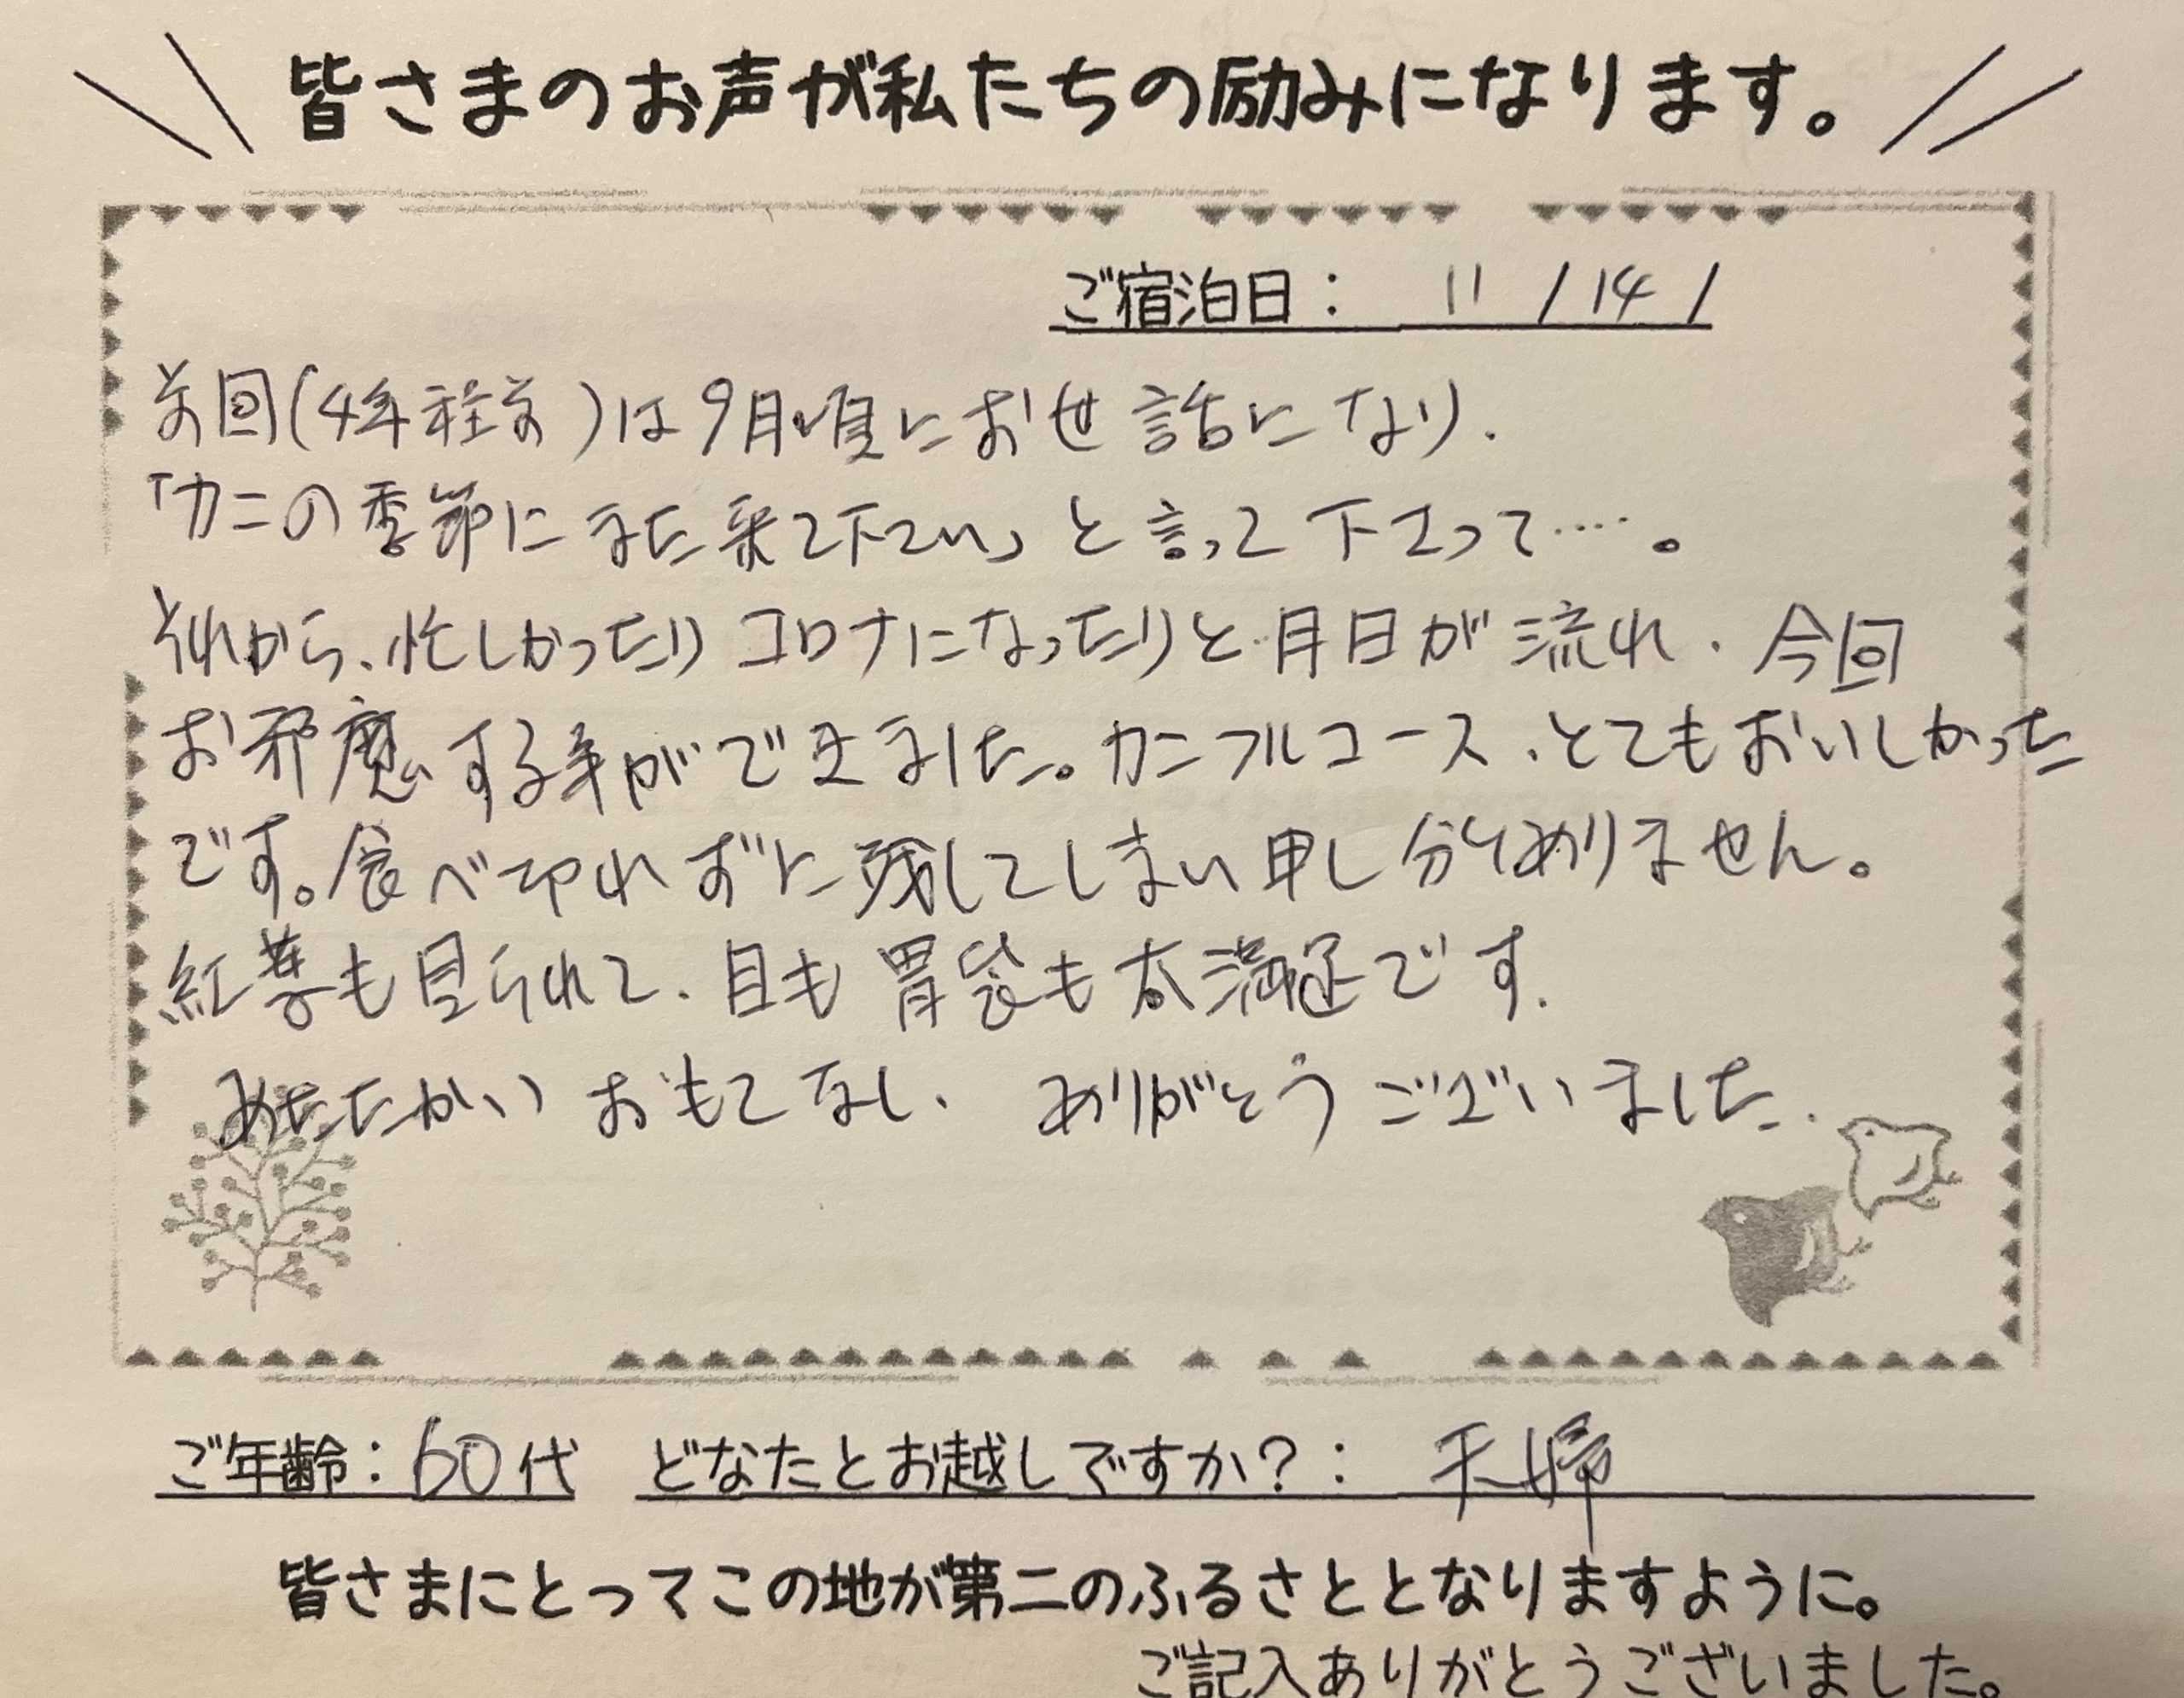 皆さまのお声が私たちの励みになります。
ご宿泊日： 11 / 14 /
前回(4年程前)は9月頃にお世話になり.
「カニの季節にまた来て下さい」と言って下さって‥‥。
それから、忙しかったり コロナになったりと月日が流れ、今回
お邪魔する事ができました。カニフルコース、とてもおいしかった
です。食べ切れずに残してしまい申し分けありません。
紅葉も見られて、目も胃袋も大満足です.
あたたかい おもてなし、 ありがとうございました.
ご年齢：60代 どなたとお越しですか？： 夫婦
皆さまにとってこの地が第二のふるさととなりますように。
ご記入ありがとうございました。